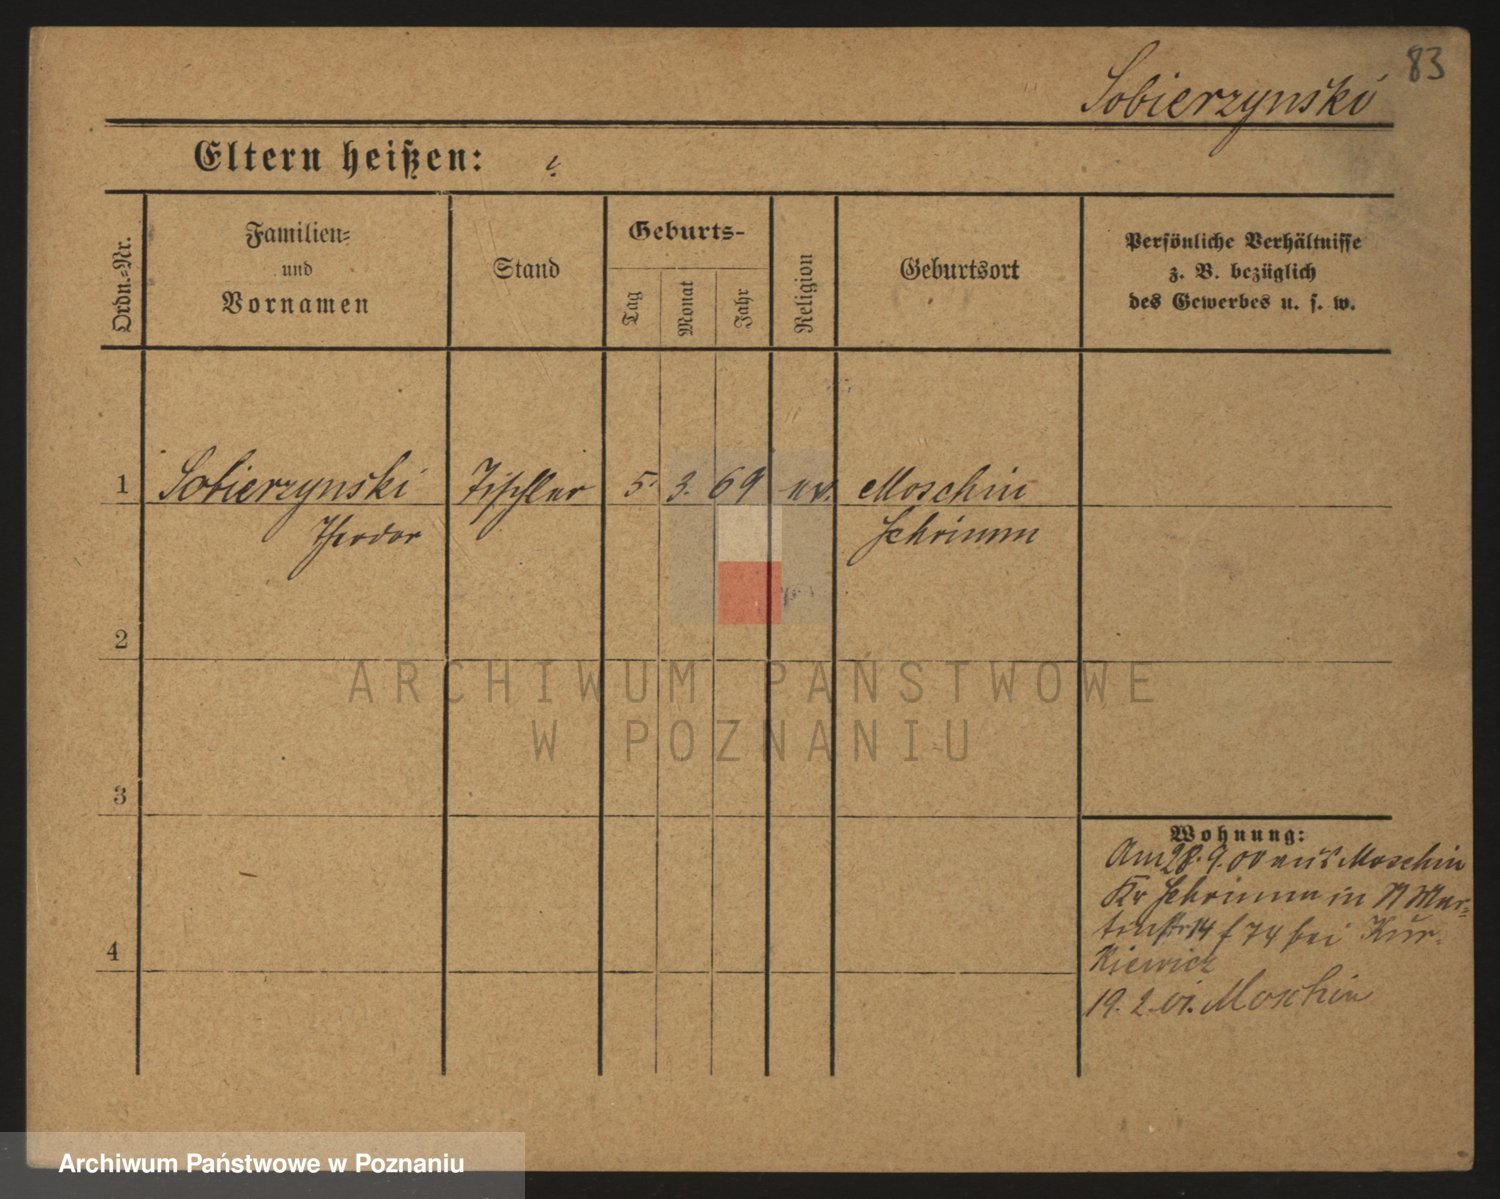 83
Sobierzynski
Eltern heißen:
Ordn.-Nr.
Familien-
und
Vornamen
Stand
Geburts-
Tag
Monat
Jahr
Religion
Geburtsort
Persönliche Verhältnisse
z. B. bezüglich
des Gewerbes u. s. w.
1 Sobierzynski Tischler 5. 3. 69 ev. Moschin
Theodor Schrimm
2
3
4
Wohnung:
Am 28.9.00 aus Moschin
Kr Schrimm in
74 bei Kur-
kiewicz
19.2.01. Moschin
ARCHIWUM PAŃSTWOWE
W POZNANIU
Archiwum Państwowe w Poznaniu